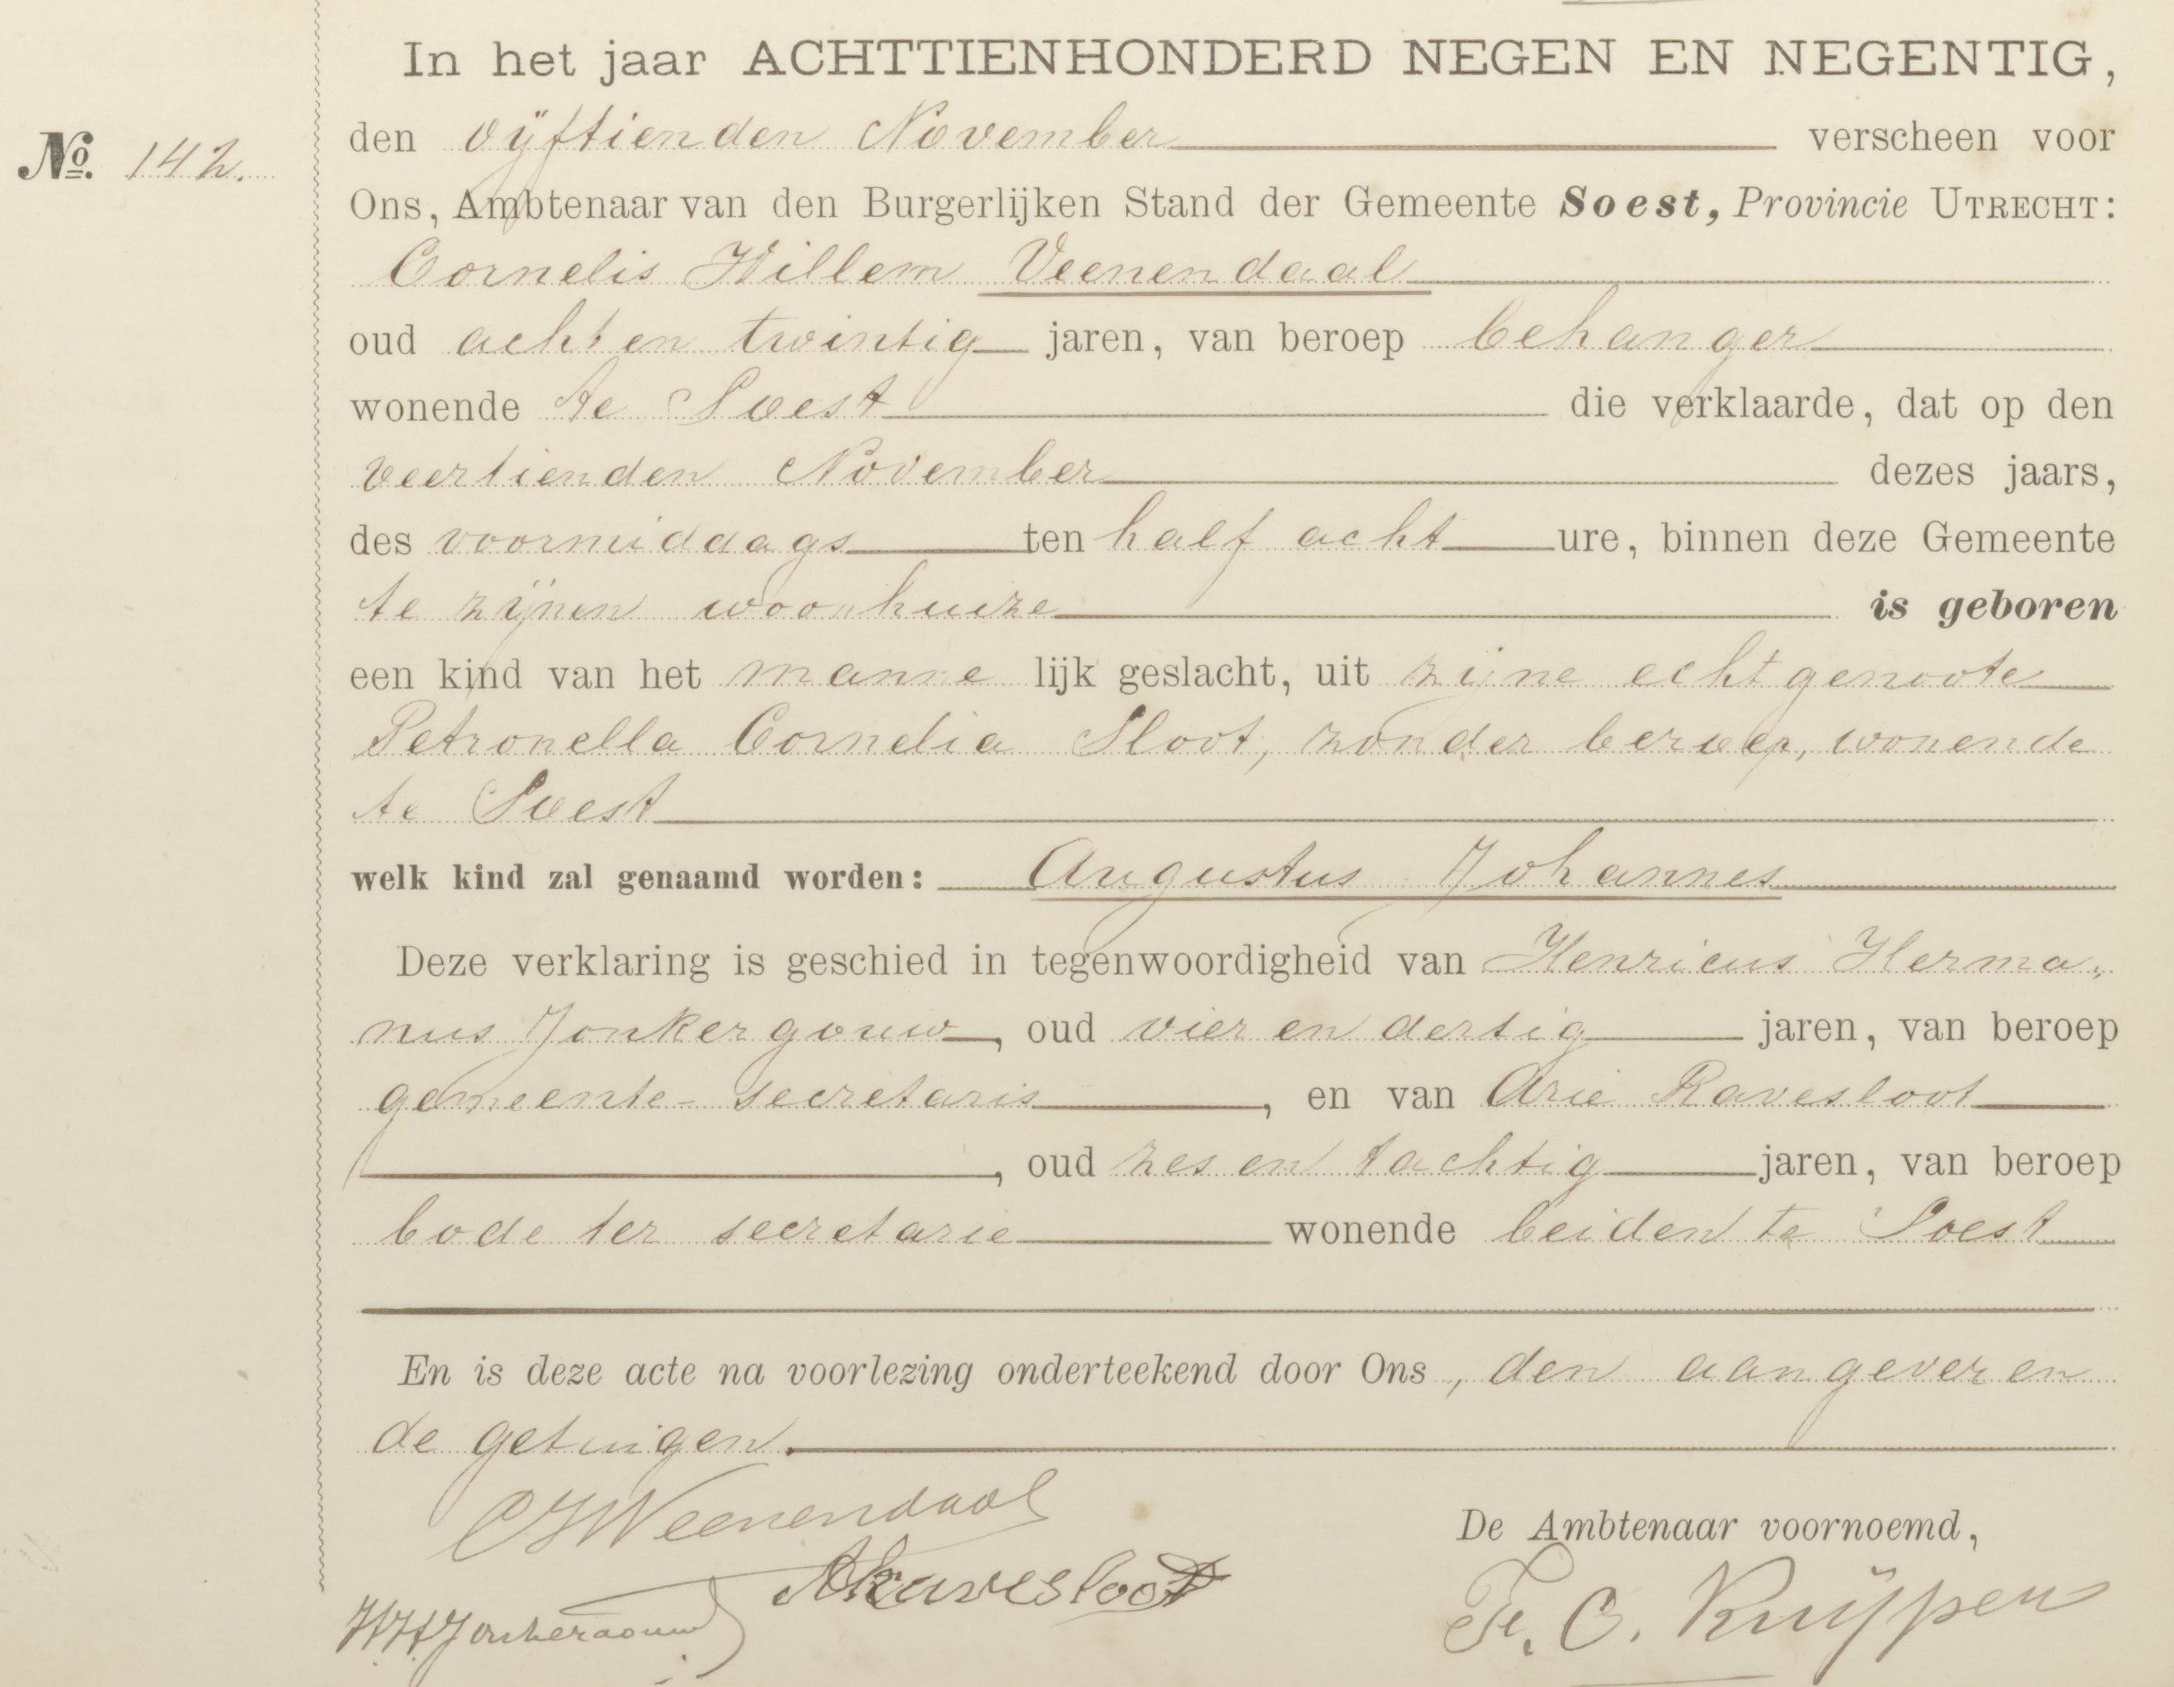 In het jaar ACHTTIENHONDERD NEGEN EN NEGENTIG,
No. 142.
den vijftienden November verscheen voor
Ons, Ambtenaar van den Burgerlijken Stand der Gemeente Soest, Provincie UTRECHT:
Cornelis Willem Veenendaal
oud acht en twintig jaren, van beroep behanger
wonende te Soest die verklaarde, dat op den
veertienden November dezes jaars,
des voormiddags ten half acht ure, binnen deze Gemeente
te zijnen woonhuize is geboren
een kind van het manne lijk geslacht, uit zijne echtgenoote
Petronella Cornelia Sloot, zonder beroep, wonende
te Soest
welk kind zal genaamd worden: Augustus Johannes
Deze verklaring is geschied in tegenwoordigheid van Henricus Herma„
nus Jonkergouw, oud vier en dertig jaren, van beroep
gemeente-secretaris, en van Arie Ravesloot
, oud zes en tachtig jaren, van beroep
bode ter secretarie wonende beiden te Soest
En is deze acte na voorlezing onderteekend door Ons, den aangever en
de getuigen.
CWVeenendaal
De Ambtenaar voornoemd,
ARavesloot
HHJonkergouw
Fr. C. Kuijpers